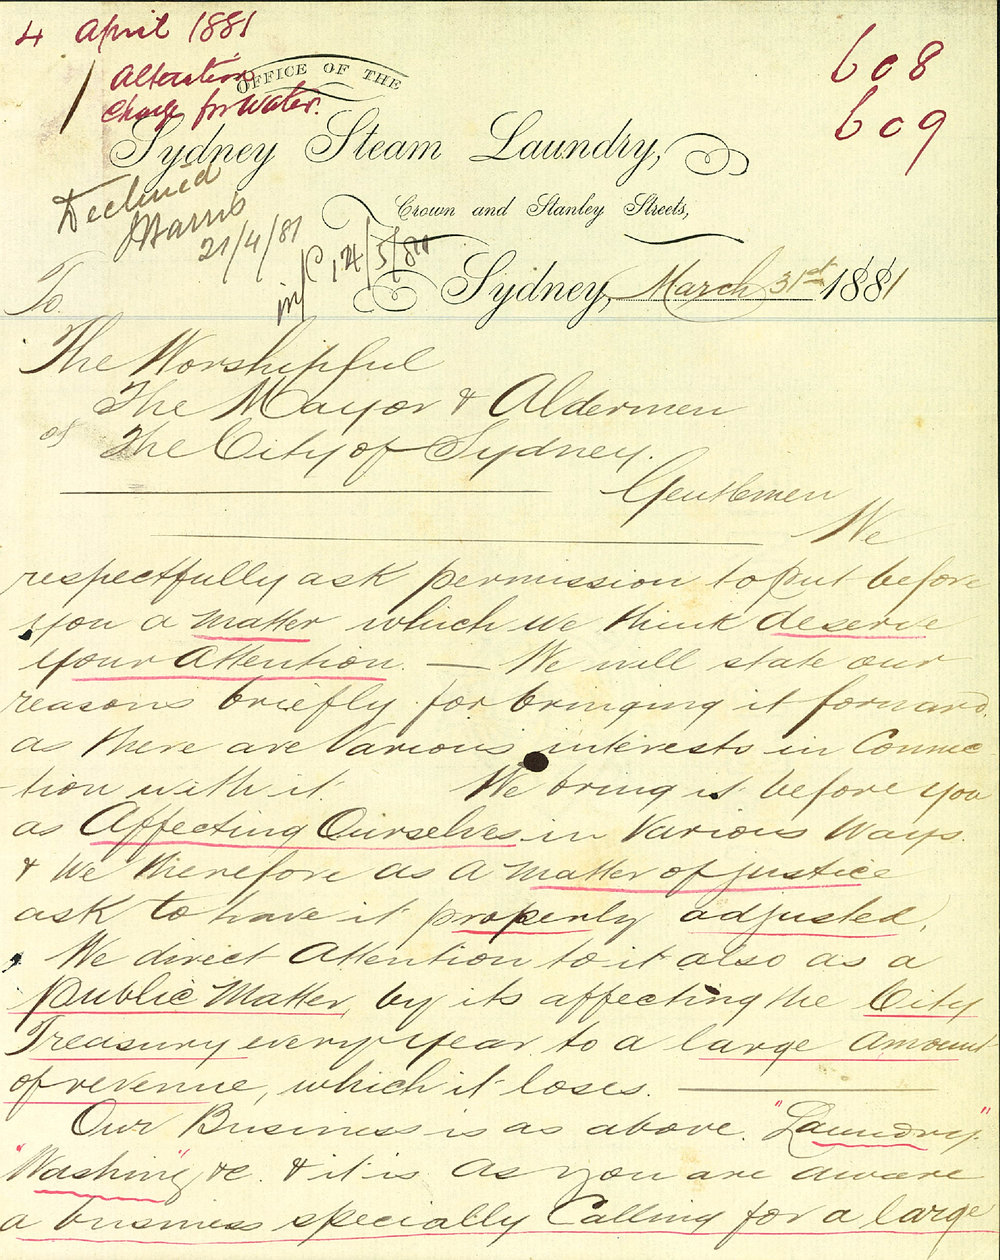 4 April 1881
608
Alteration
609
Charge for Water.
OFFICE OF THE
Sydney Steam Laundry,
Crown and Stanley Streets,
Declined
21/4/81
Sydney, March 31st 1881
To.
The Worshipful
The Mayor & Aldermen
of The City of Sydney.
Gentlemen
We
respectfully ask permission to put before
you a matter which we think deserve
your Attention. — We will state our
reasons briefly for bringing it forward,
as there are Various interests in Connec
tion with it. We bring it before you
as Affecting Ourselves in Various Ways.
& We therefore as a matter of justice
ask to have it properly adjusted,
We direct Attention to it also as a
Public Matter, by its affecting the City
Treasury every Year to a large amount
of revenue, which it loses.
Our Business is as above. "Laundry."
"Washing" &c. & it is as you are aware
a business specially Calling for a large